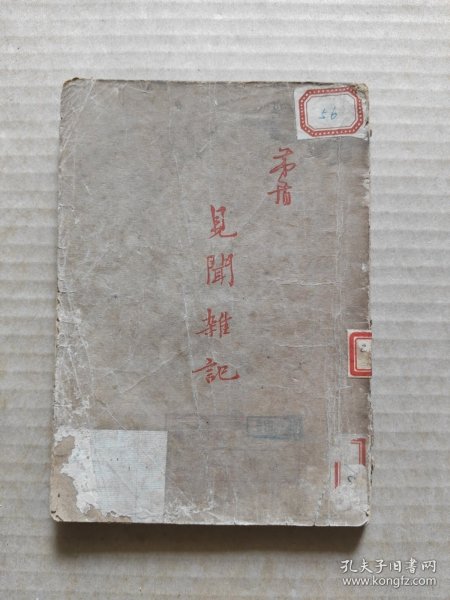 56
茅盾
見聞雜記
孔夫子旧书网
www.kongfz.com